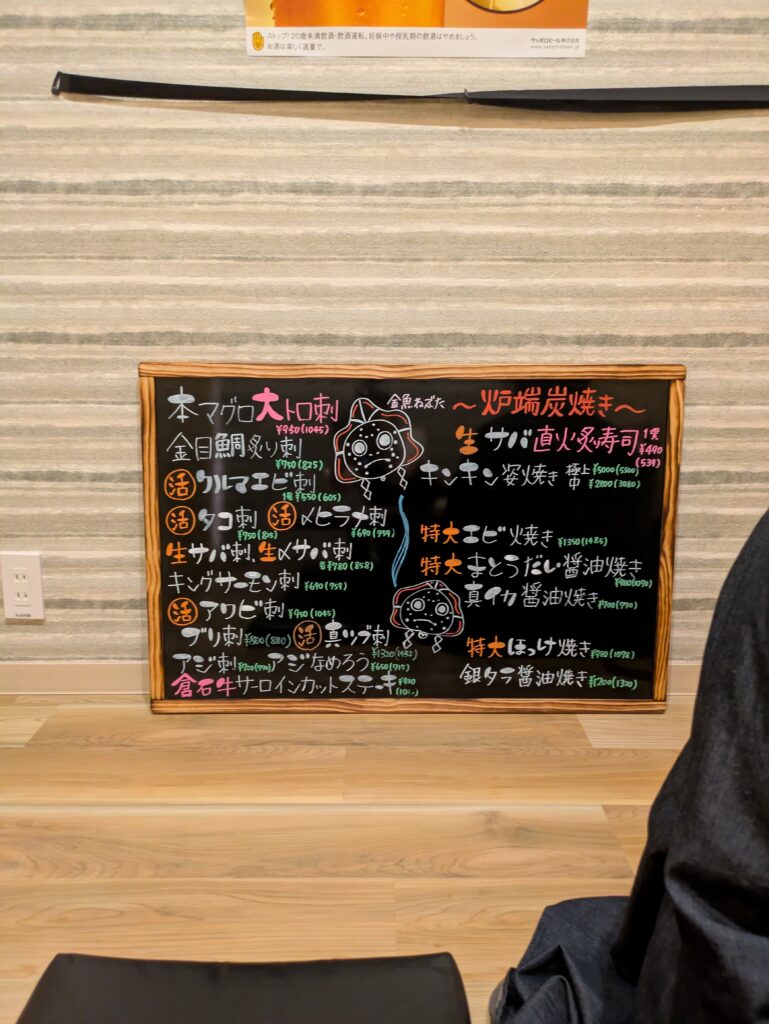 ストップ!20歳未満飲酒・飲酒運転。妊娠中や授乳期の飲酒はやめましょう。
お酒は楽しく適量で。
サッポロビール株式会社
www.sapporobeer.jp
本マグロ大トロ刺
¥950(1045)
金目鯛炙り刺
¥750(825)
活クルマエビ刺
1尾¥550(605)
活タコ刺 活〆ヒラメ刺
¥750(825) ¥690(759)
生サバ刺、生〆サバ刺
各¥780(858)
キングサーモン刺 ¥690(759)
活アワビ刺 ¥950(1045)
ブリ刺 ¥800(880) 活真ツブ刺
¥1320(1452)
アジ刺 ¥700(770) アジなめろう ¥650(715)
倉石牛サーロインカットステーキ ¥920
金魚ねぶた
〜炉端炭焼き〜
生サバ直火炙り寿司 1貫
¥490
(539)
キンキン姿焼き 極上 ¥5000(5500)
中 ¥2800(3080)
特大エビ焼き ¥1350(1485)
特大まとうだい醤油焼き
¥980(1078)
真イカ醤油焼き ¥700(770)
特大ほっけ焼き ¥980(1078)
銀タラ醤油焼き ¥1200(1320)